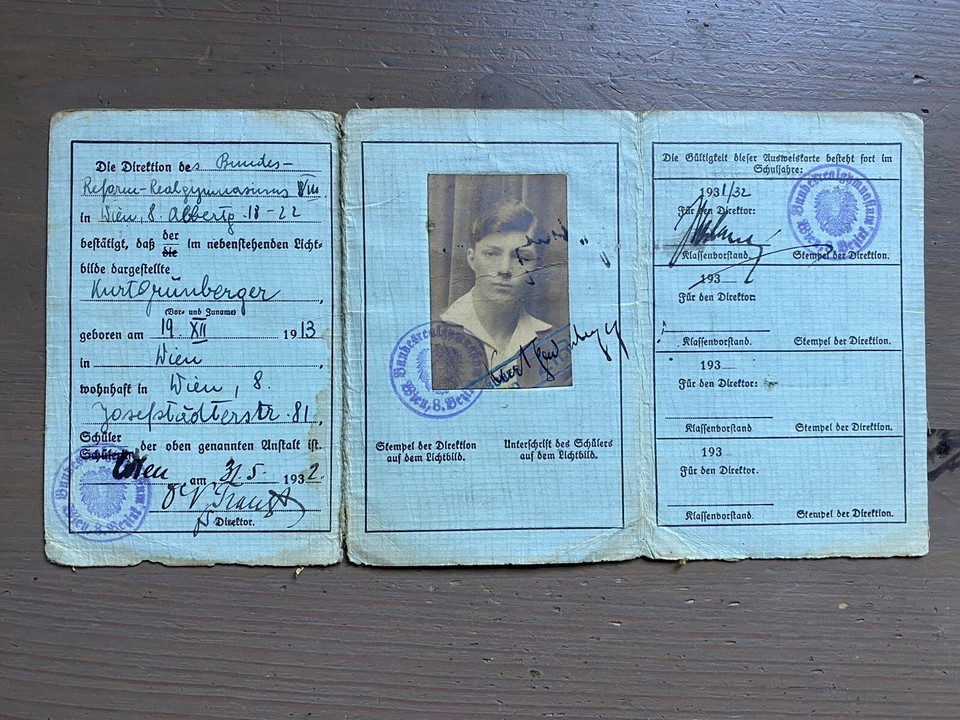 Die Direktion des Bundes-
Reform-Realgymnasiums VIII
in Wien, 8. Albertg. 18-22
bestätigt, daß der
die im nebenstehenden Licht-
bilde dargestellte
Kurt Grünberger
(Vor- und Zuname)
geboren am 19. XII 1913
in Wien
wohnhaft in Wien, 8.
Josefstädterstr. 81,
Schüler
Schülerin der oben genannten Anstalt ist.
Wien, am 31.5 1932.
Direktor.
Bundesrealgymnasium
Wien, 8. Bezirk
Kurt Grünberger
Stempel der Direktion
auf dem Lichtbild.
Unterschrift des Schülers
auf dem Lichtbild.
Die Gültigkeit dieser Ausweiskarte besteht fort im
Schuljahre:
1931/32
Für den Direktor:
Klassenvorstand. Stempel der Direktion.
Bundesrealgymnasium
Wien, 8. Bezirk
193
Für den Direktor:
Klassenvorstand. Stempel der Direktion.
193
Für den Direktor:
Klassenvorstand Stempel der Direktion.
193
Für den Direktor.
Klassenvorstand. Stempel der Direktion.